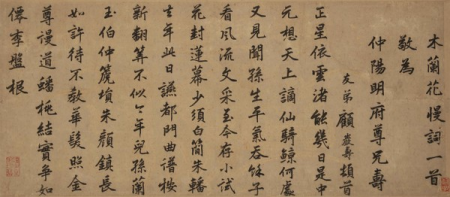 木蘭花慢詞一首
敬為
仲陽明府尊兄壽
友弟顧巖壽頓首
正星依雲渚能幾日是中
元想天上謫仙騎鯨何處
又見聞孫生年氣吞餘子
看風流文采至今存小試
花封蓮幕少須白簡朱轓
去年此日讌都門曲譜按
新翻算不似今年兒孫蘭
玉伯仲篪塤朱顏鎮長
如許待不教華髮照金
尊漫道蟠桃結實爭如
僊李盤根